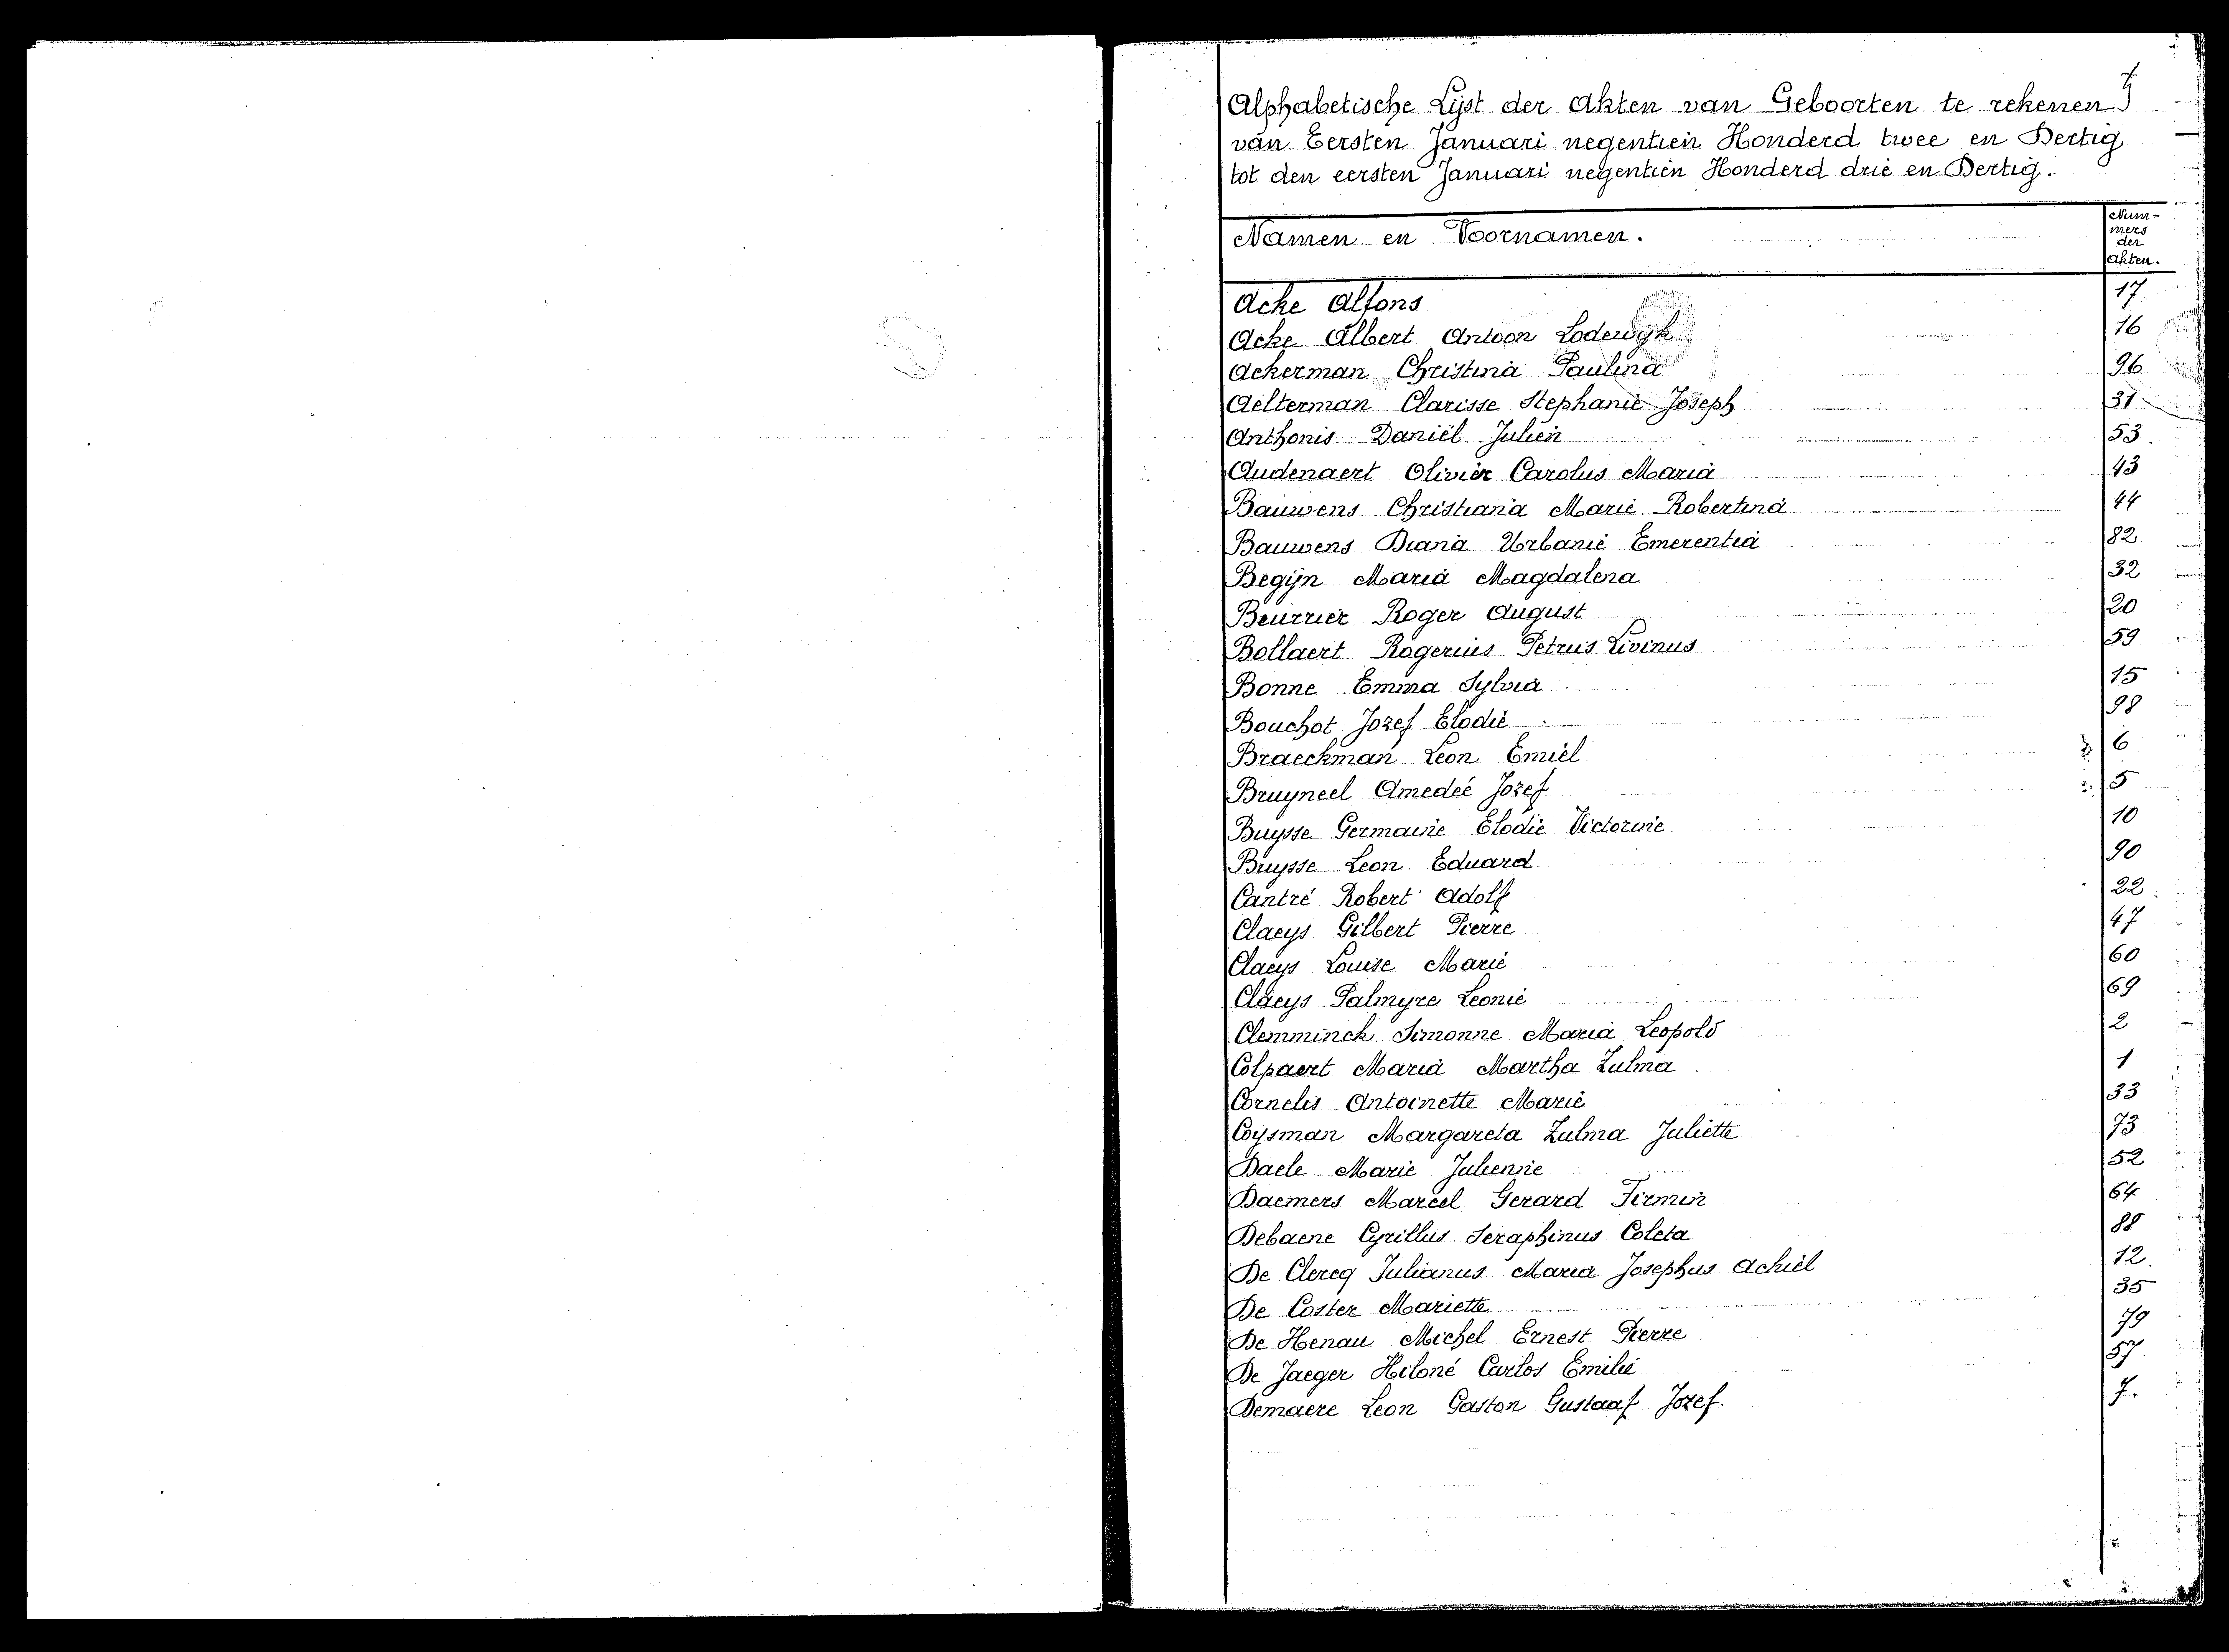 Alphabetische Lijst der Akten van Geboorten te rekenen
van Eersten Januari negentien Honderd twee en Dertig
tot den eersten Januari negentien Honderd drie en Dertig.
Namen en Voornamen. Num-
mers
der
akten.
Acke Alfons 17
Acke Albert Antoon Lodewijk 16
Ackerman Christina Paulina 96
Aelterman Clarisse Stephanie Joseph 31
Anthonis Daniël Julien 53
Audenaert Olivier Carolus Maria 43
Bauwens Christiana Marie Robertina 44
Bauwens Diana Urbanie Emerentia 82
Begijn Maria Magdalena 32
Beurrier Roger August 20
Bollaert Rogerius Petrus Livinus 59
Bonne Emma Sylvia 15
Bouchot Jozef Elodie 98
Braeckman Leon Emiel 6
Bruyneel Amedeé Jozef 5
Buysse Germaine Elodie Victorine 10
Buysse Leon Eduard 90
Cantré Robert Adolf 22
Claeys Gilbert Pierre 47
Claeys Louise Marie 60
Claeys Palmyre Leonie 69
Clemminck Simonne Maria Leopold 2
Colpaert Maria Martha Zulma 1
Cornelis Antoinette Marie 33
Coysman Margareta Zulma Juliette 73
Daele Marie Julienne 52
Daemers Marcel Gerard Firmin 64
Debaene Cyrillus Seraphinus Coleta 88
De Clercq Julianus Maria Josephus Achiel 12
De Coster Mariette 35
De Henau Michel Ernest Pierre 79
De Jaeger Hiloné Carlos Emilie 57
Demaere Leon Gaston Gustaaf Jozef. 7.